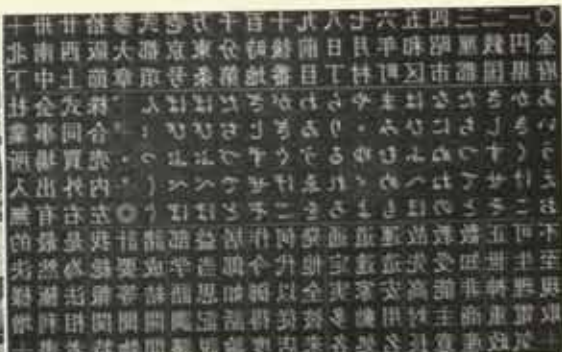 一二三四五六七八九十百千万壱弐参拾
金円銭厘昭和年月日前後時分東京都大阪西南北
府県国郡市区町村丁目番地第条号項章節上中下
あかさたなはまやらわがざだばぱん株式会社
いきしちにひみ・りゐぎじぢびぴ：合同事業
うくすつぬふむゆるうぐずづぶぷっ・売買場所
えけせてねへめれゑげぜでべぺ（内外出入
おこそとのほもよろをごぞどぼぽ（◎左右有無
不可正数教故運道通発何作活益部諸計我是最的
至生世知受先造達定他代今郎当学成要総為然決
現理神非能高女家実全以師如思語結等報法権様
取電車商主対用動多彼従得話記調開間関相利増